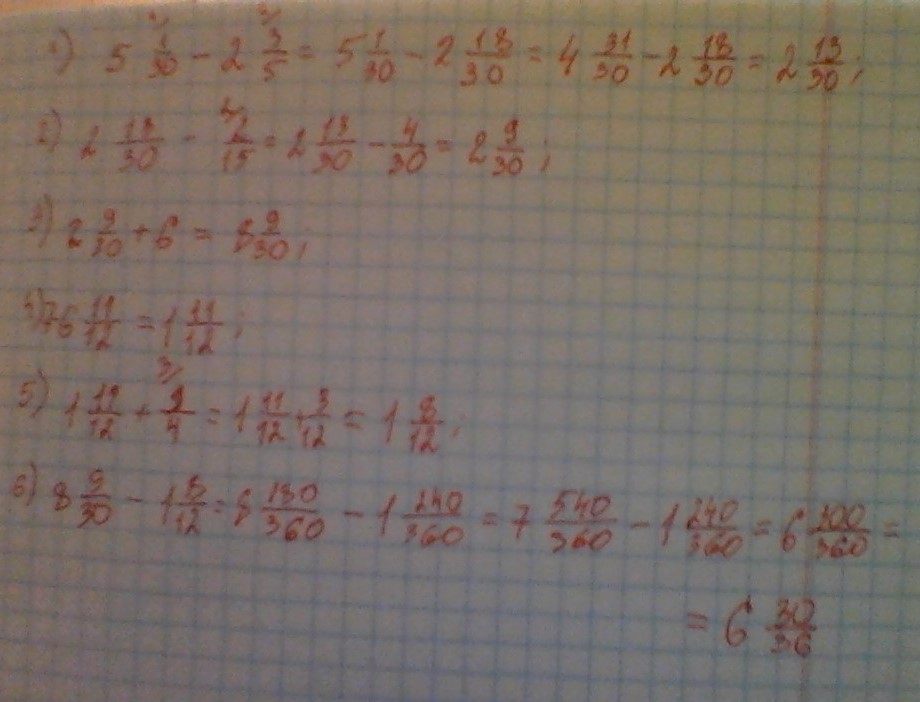 1) 5 1/30 - 2 3/5 = 5 1/30 - 2 18/30 = 4 31/30 - 2 18/30 = 2 13/30;
2) 2 13/30 - 2/15 = 2 13/30 - 4/30 = 2 9/30;
3) 2 9/30 + 6 = 8 9/30;
6 11/12 = 1 11/12;
5) 1 11/12 + 1/4 = 1 11/12 + 3/12 = 1 8/12;
6) 8 9/30 - 1 8/12 = 8 180/360 - 1 240/360 = 7 540/360 - 1 240/360 = 6 300/360 =
= 6 30/36